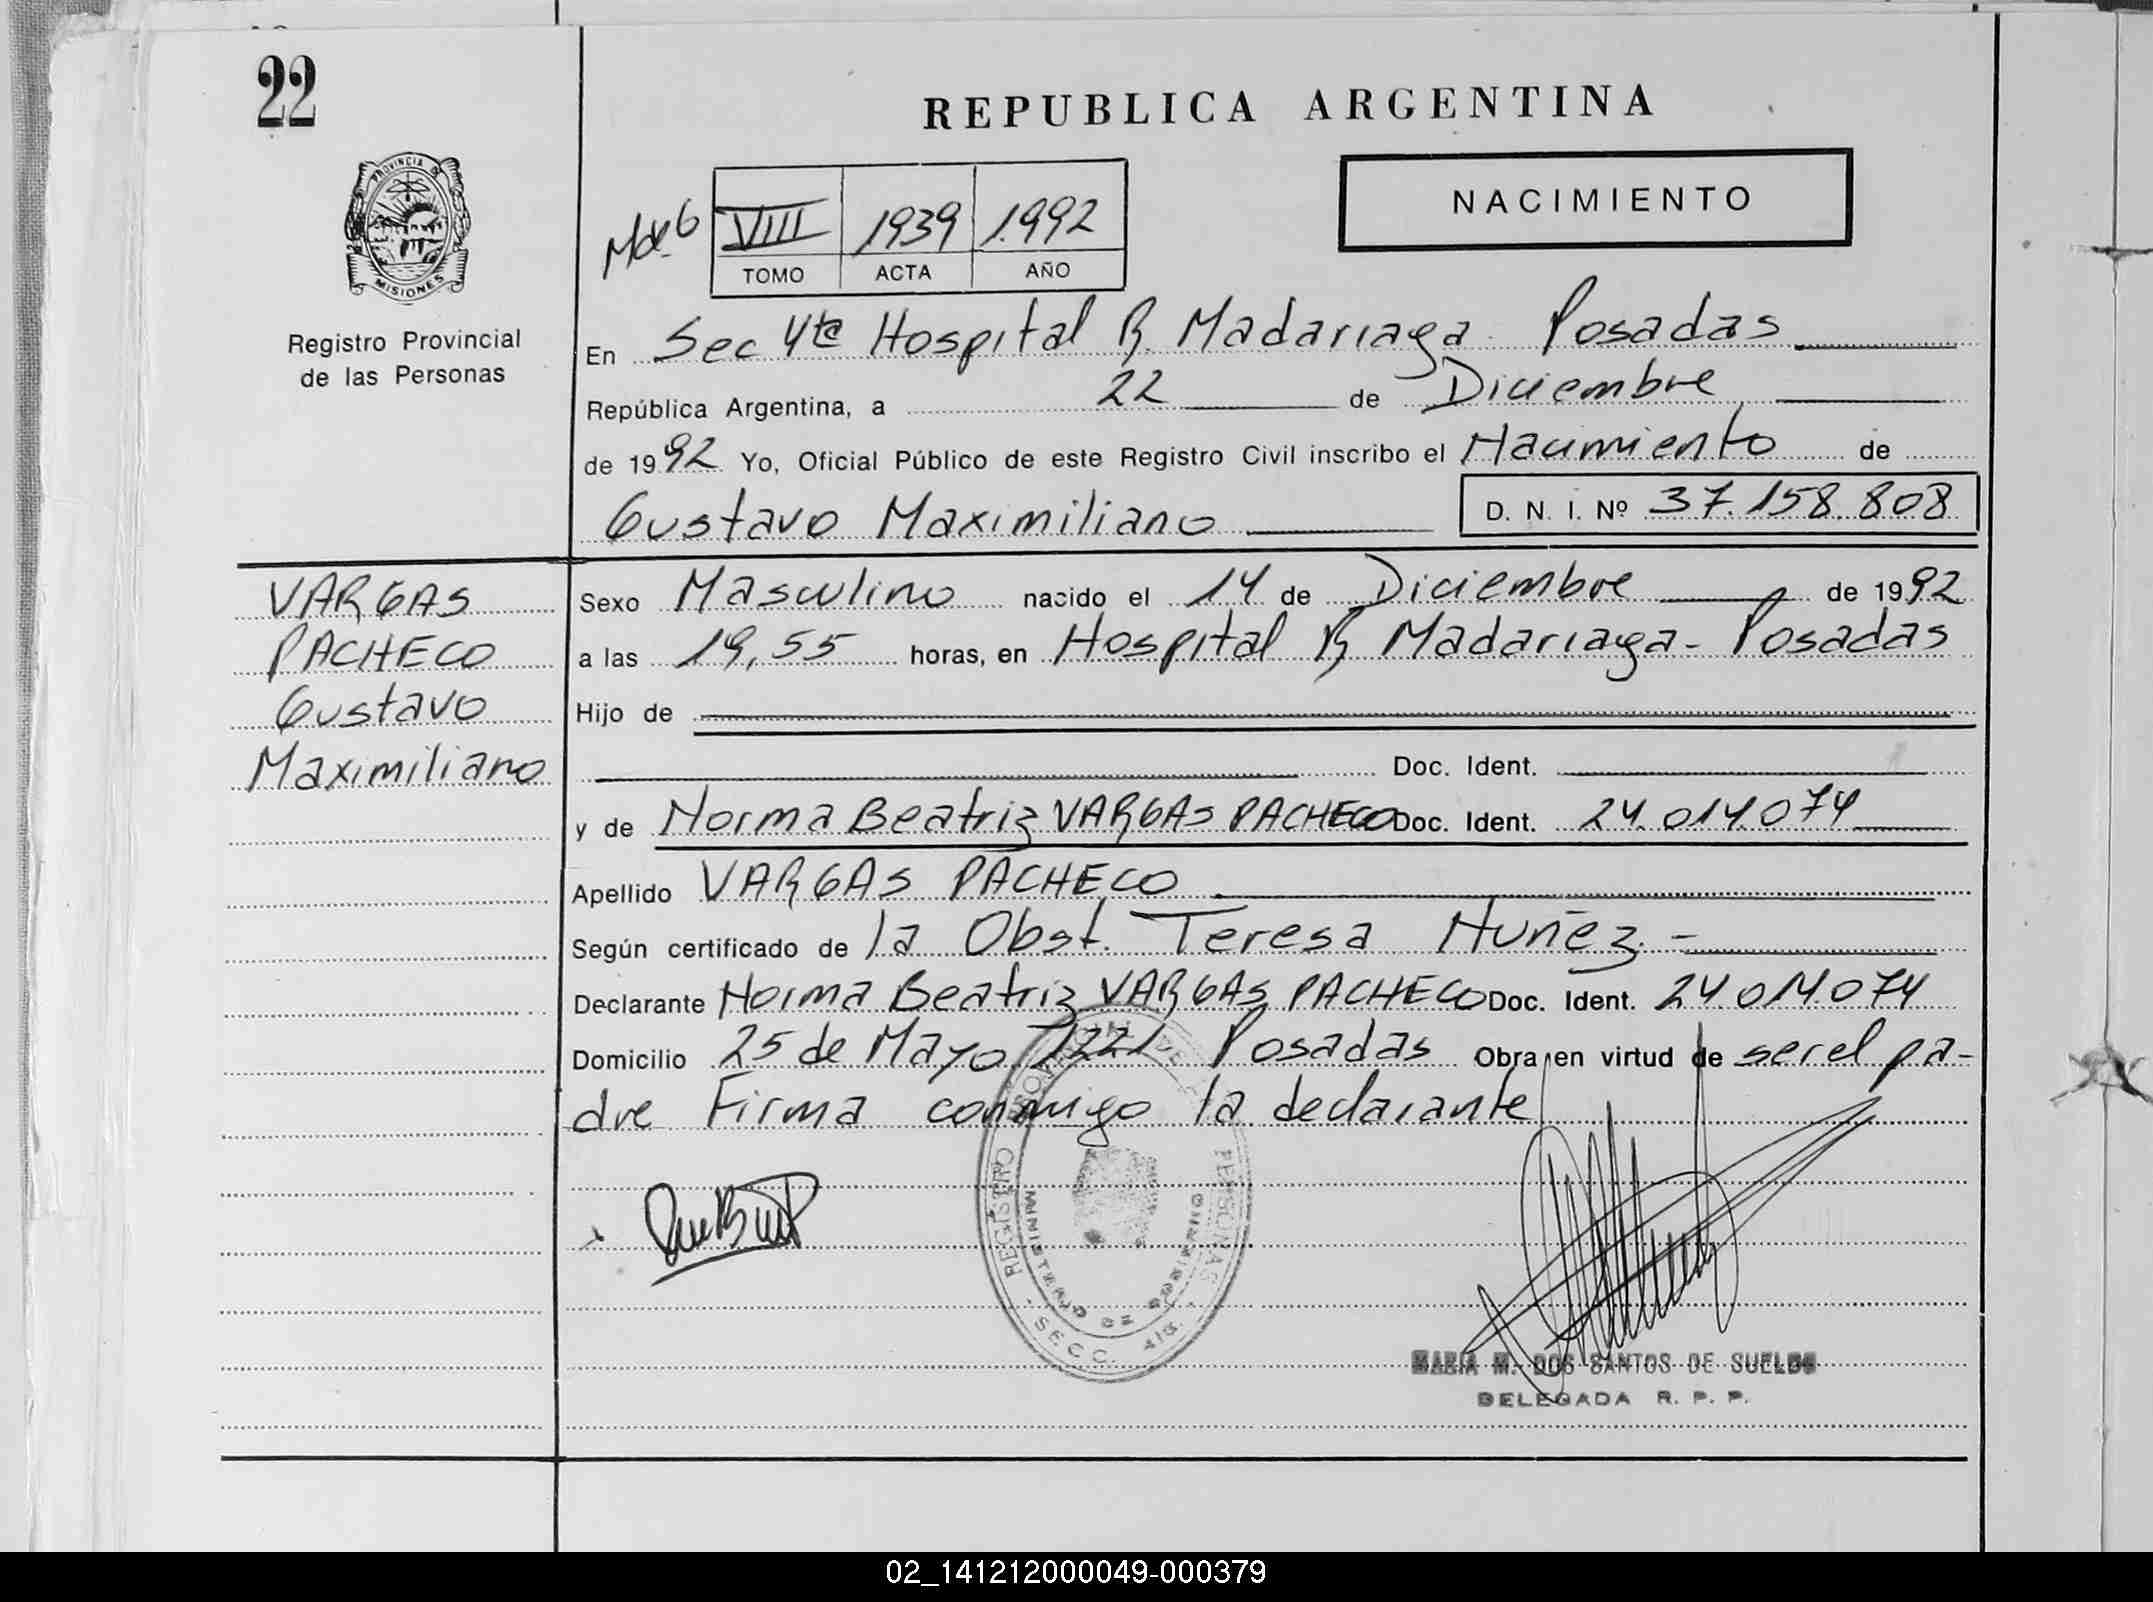 22
REPUBLICA ARGENTINA
PROVINCIA DE
MISIONES
Registro Provincial
de las Personas
VIII 1939 1992
TOMO ACTA AÑO
NACIMIENTO
En Sec 4ta Hospital R. Madariaga Posadas
República Argentina, a 22 de Diciembre
de 1992 Yo, Oficial Público de este Registro Civil inscribo el Nacimiento de
Gustavo Maximiliano D. N. I. Nº 37.158.808
VARGAS
PACHECO
Gustavo
Maximiliano
Sexo Masculino nacido el 14 de Diciembre de 1992
a las 19,55 horas, en Hospital R Madariaga - Posadas
Hijo de
Doc. Ident.
y de Norma Beatriz VARGAS PACHECO Doc. Ident. 24.014.074
Apellido VARGAS PACHECO
Según certificado de la Obst. Teresa Nuñez. -
Declarante Norma Beatriz VARGAS PACHECO Doc. Ident. 24 014.074
Domicilio 25 de Mayo 1221 Posadas Obra en virtud de ser el pa-
dre Firma conmigo la declarante
REGISTRO PROVINCIAL DE LAS PERSONAS
MINISTERIO DE GOBIERNO
SECC. 4ta.
MARIA M. DOS SANTOS DE SUELDO
DELEGADA R. P. P.
02_141212000049-000379